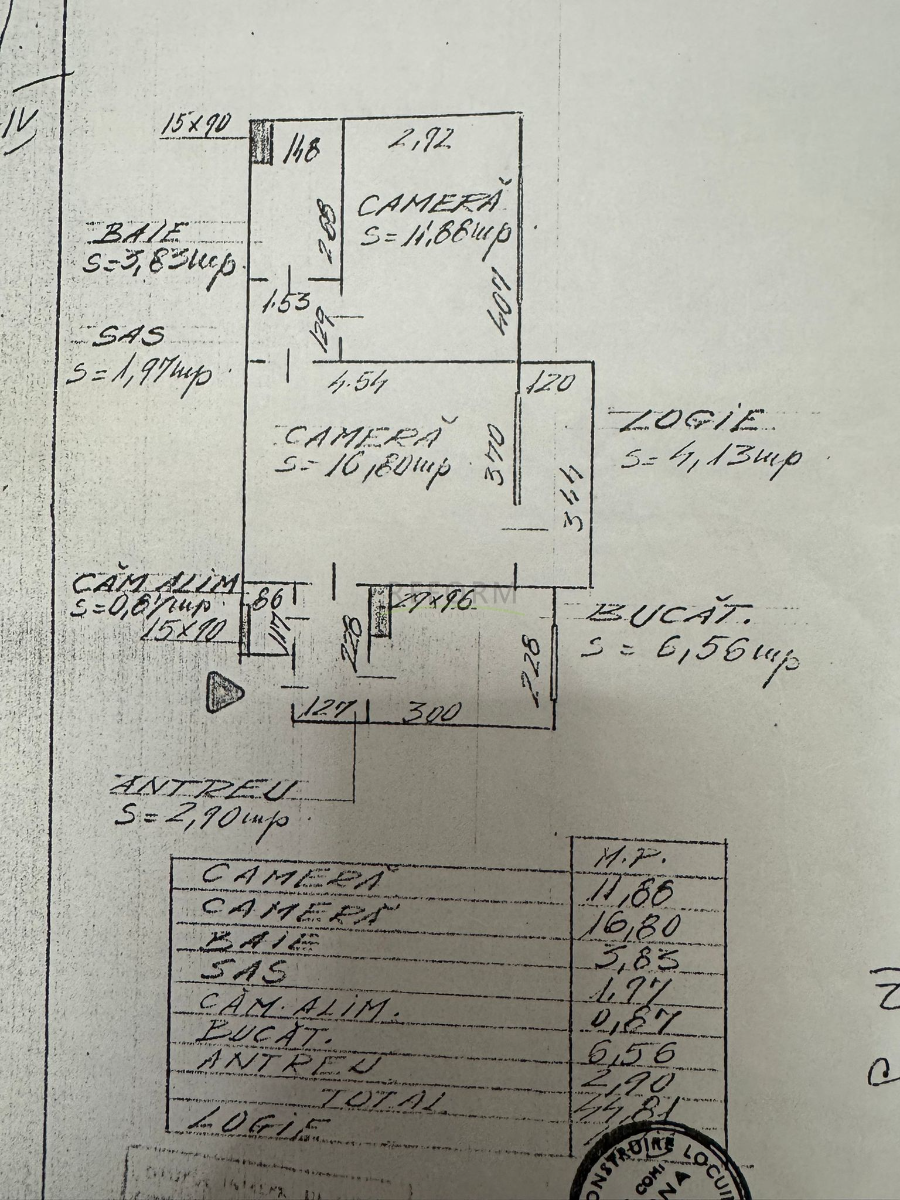 IV
15x90
148
2,92
208
CAMERĂ
S=11,88mp
BAIE
S=3,83mp
407
1.53
129
SAS
S=1,97mp
4.54
120
CAMERĂ
S=16,80mp
370
344
LOGIE
S=4,13mp
CĂM ALIM
S=0,87mp
15x90
86
117
228
29x96
REFORM
BUCĂT.
S=6,56mp
228
127
300
ANTREU
S=2,90mp
M.P.
CAMERĂ 11,88
CAMERĂ 16,80
BAIE 3,83
SAS 1,97
CĂM. ALIM. 0,87
BUCĂT. 6,56
ANTREU 2,90
TOTAL 44,81
LOGIE